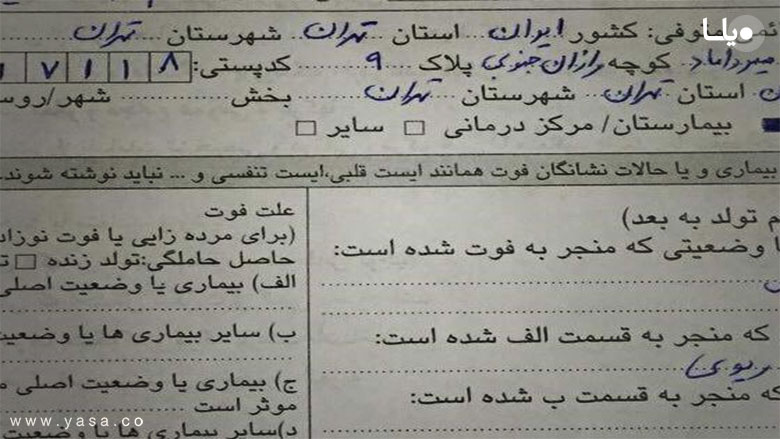 یاسا
متوفی: کشور ایران استان تهران شهرستان تهران
میرداماد کوچه رازان جنوبی پلاک ۹ کدپستی: ۷ ۱ ۱ ۸
استان تهران شهرستان تهران بخش شهر/روس
بیمارستان/ مرکز درمانی □ سایر □
بیماری و یا حالات نشانگان فوت همانند ایست قلبی،ایست تنفسی و ... نباید نوشته شوند.
م تولد به بعد)
ا وضعیتی که منجر به فوت شده است:
که منجر به قسمت الف شده است:
ریوی
که منجر به قسمت ب شده است:
علت فوت
(برای مرده زایی یا فوت نوزاد
حاصل حاملگی:تولد زنده □ ت
الف) بیماری یا وضعیت اصلی
ب) سایر بیماری ها یا وضعیت
ج) بیماری یا وضعیت اصلی م
موثر است
د)سایر بیماری ها یا وضعیت
www.yasa.co